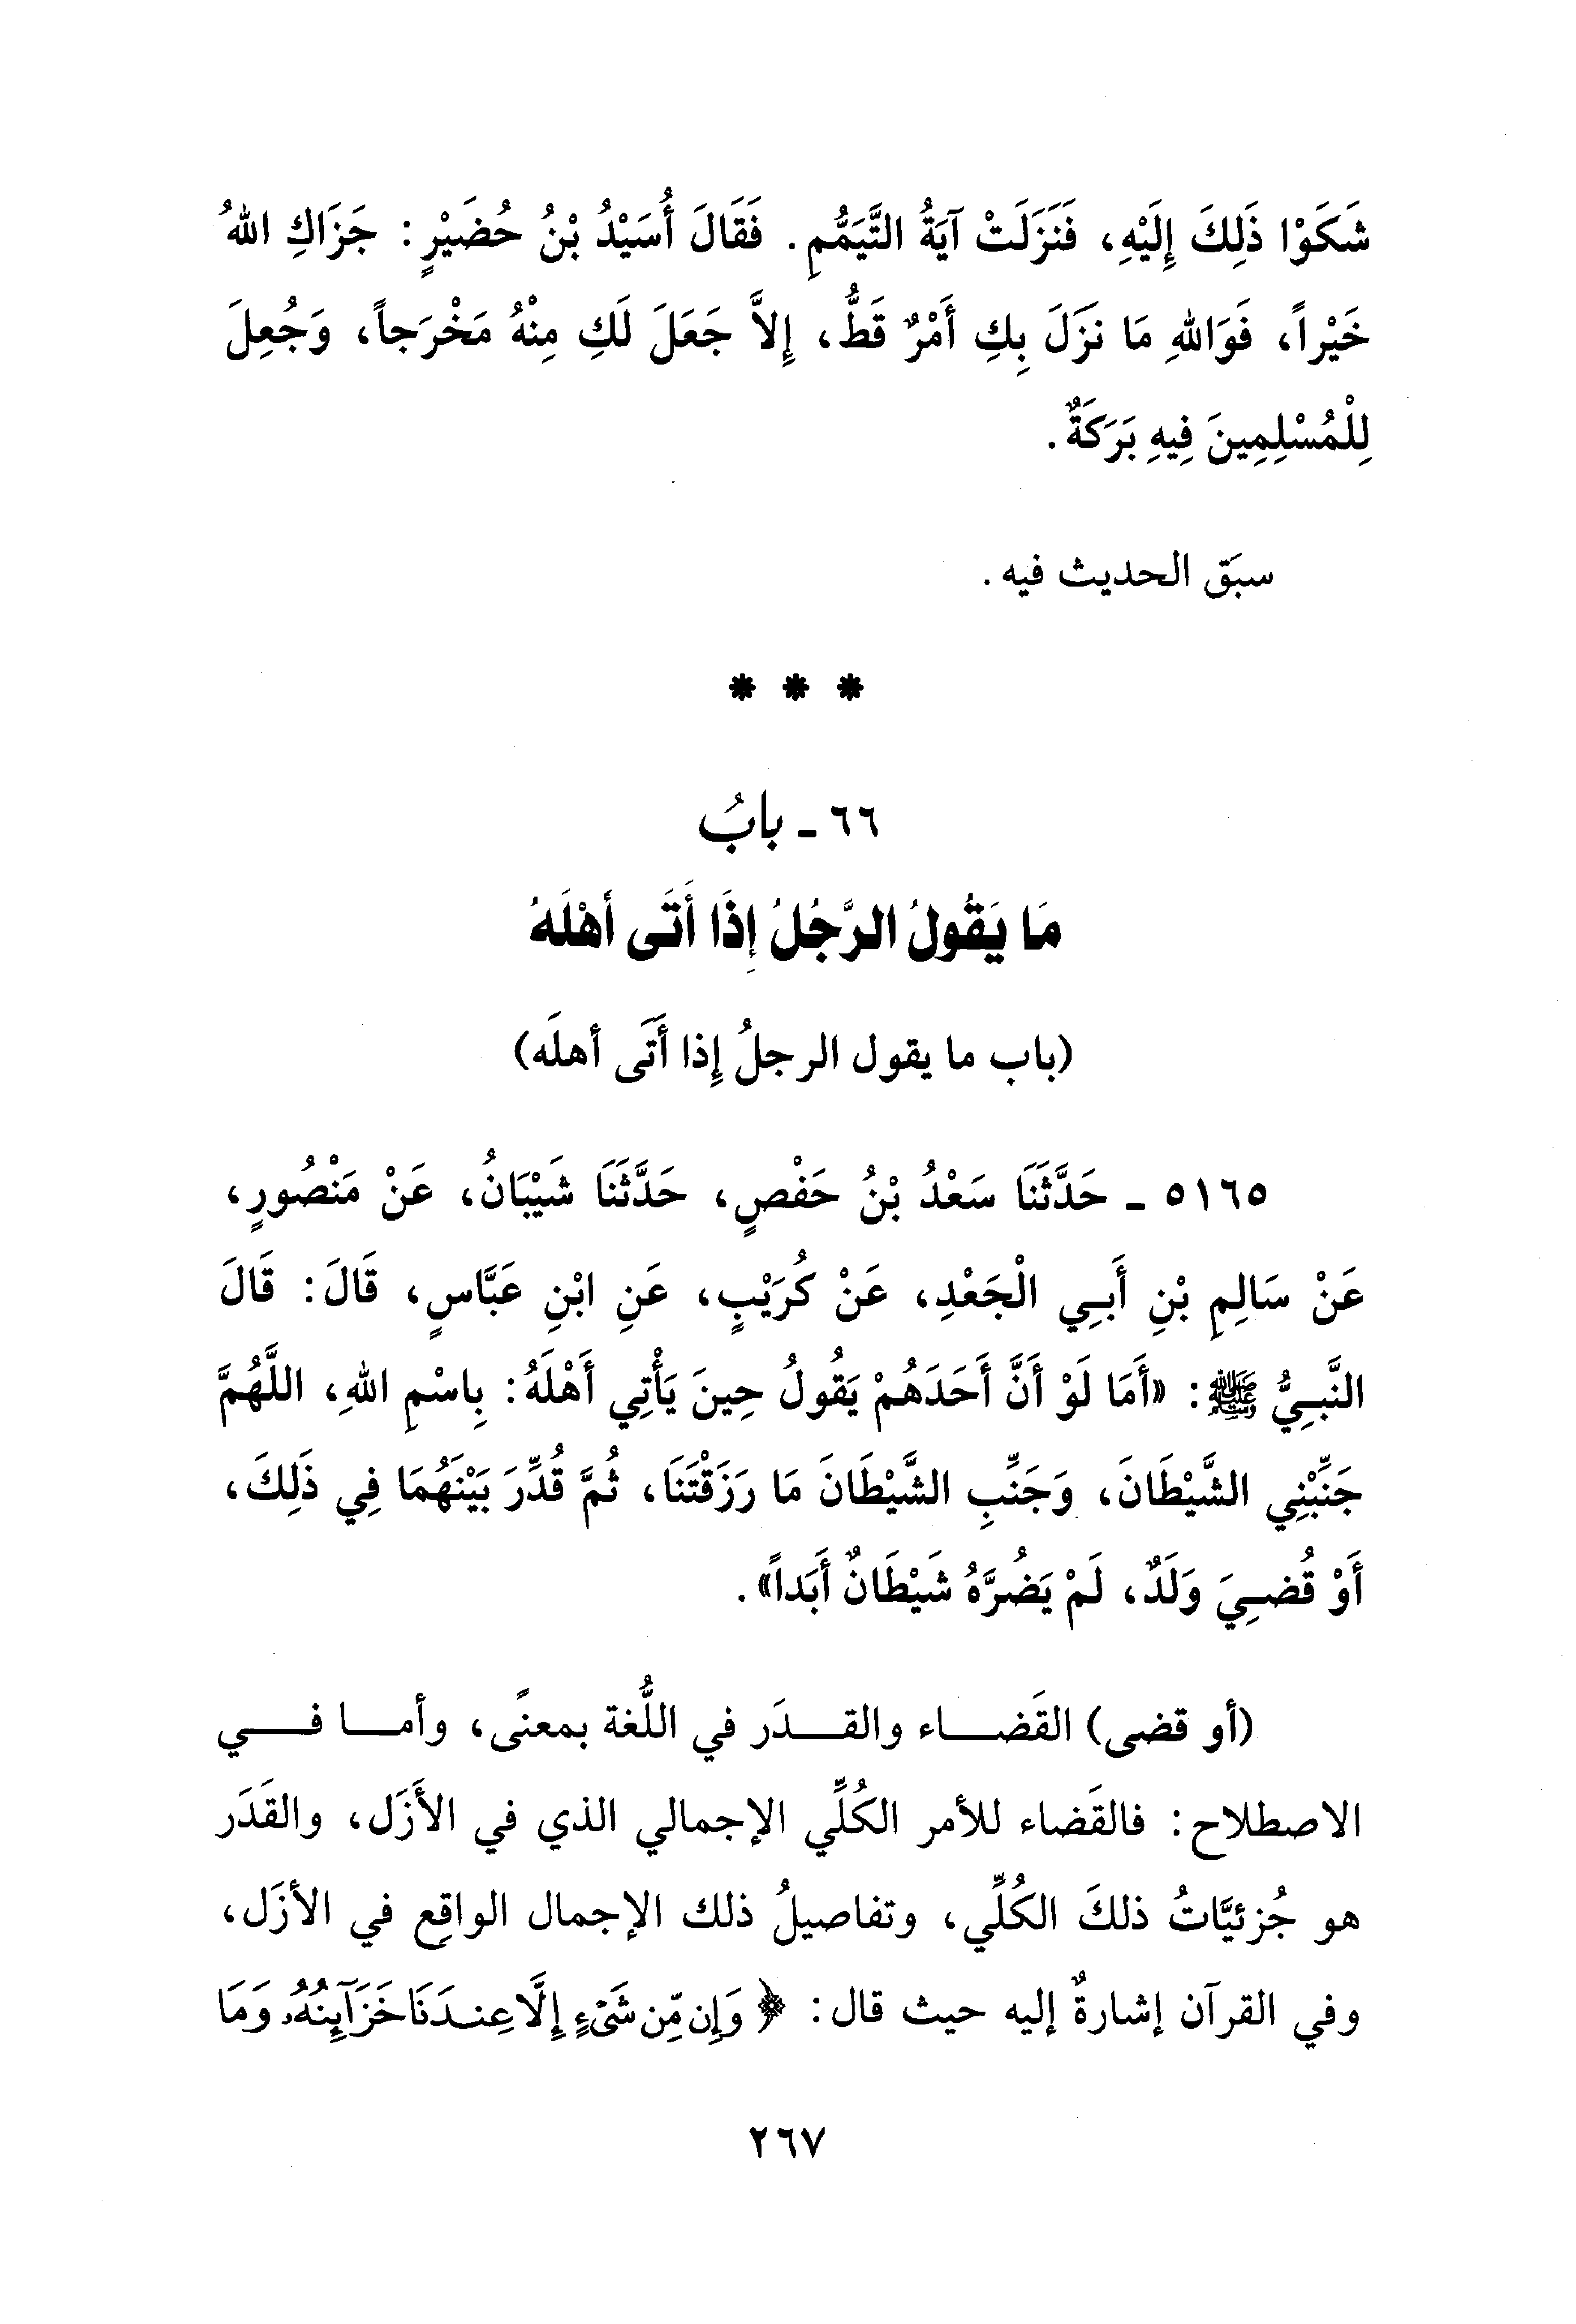 شَكَوْا ذَلِكَ إِلَيْهِ، فَنَزَلَتْ آيَةُ التَّيَمُّمِ. فَقَالَ أُسَيْدُ بْنُ حُضَيْرٍ: جَزَاكِ اللهُ
خَيْراً، فَوَاللهِ مَا نزَلَ بِكِ أَمْرٌ قَطُّ، إِلاَّ جَعَلَ لَكِ مِنْهُ مَخْرَجاً، وَجُعِلَ
لِلْمُسْلِمِينَ فِيهِ بَرَكَةٌ.
سبَق الحديث فيه.
* * *
٦٦ - بابُ
مَا يَقُولُ الرَّجُلُ إِذَا أَتَى أهْلَهُ
(باب ما يقول الرجلُ إِذا أَتَى أهلَه)
٥١٦٥ - حَدَّثَنَا سَعْدُ بْنُ حَفْصٍ، حَدَّثَنَا شَيْبَانُ، عَنْ مَنْصُورٍ،
عَنْ سَالِمِ بْنِ أَبِي الْجَعْدِ، عَنْ كُرَيْبٍ، عَنِ ابْنِ عَبَّاسٍ، قَالَ: قَالَ
النَّبِيُّ ﷺ: «أَمَا لَوْ أَنَّ أَحَدَهُمْ يَقُولُ حِينَ يَأْتِي أَهْلَهُ: بِاسْمِ اللهِ، اللَّهُمَّ
جَنِّبْنِي الشَّيْطَانَ، وَجَنِّبِ الشَّيْطَانَ مَا رَزَقْتَنَا، ثُمَّ قُدِّرَ بَيْنَهُمَا فِي ذَلِكَ،
أَوْ قُضِيَ وَلَدٌ، لَمْ يَضُرَّهُ شَيْطَانٌ أَبَداً».
(أو قضى) القَضاء والقدَر في اللُّغة بمعنًى، وأما في
الاصطلاح: فالقَضاء للأمر الكُلِّي الإجمالي الذي في الأَزَل، والقَدَر
هو جُزئيَّاتُ ذلكَ الكُلِّي، وتفاصيلُ ذلك الإجمال الواقِع في الأزَل،
وفي القرآن إشارةٌ إليه حيث قال: ﴿وَإِن مِّن شَىْءٍ إِلَّا عِندَنَا خَزَآئِنُهُۥ وَمَا
٢٦٧